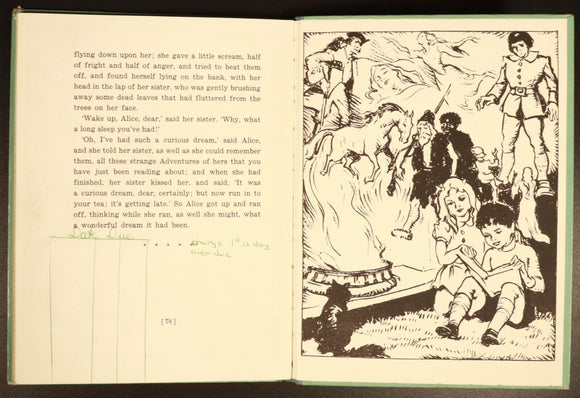 flying down upon her; she gave a little scream, half
of fright and half of anger, and tried to beat them
off, and found herself lying on the bank, with her
head in the lap of her sister, who was gently brushing
away some dead leaves that had fluttered from the
trees on her face.
‘Wake up, Alice, dear,’ said her sister. ‘Why, what
a long sleep you’ve had!’
‘Oh, I’ve had such a curious dream,’ said Alice,
and she told her sister, as well as she could remember
them, all these strange Adventures of hers that you
have just been reading about; and when she had
finished, her sister kissed her, and said, ‘It was
a curious dream, dear, certainly; but now run in to
your tea; it’s getting late.’ So Alice got up and ran
off, thinking while she ran, as well she might, what
a wonderful dream it had been.
Date Due
charge 1¢ a day
over due
[78]